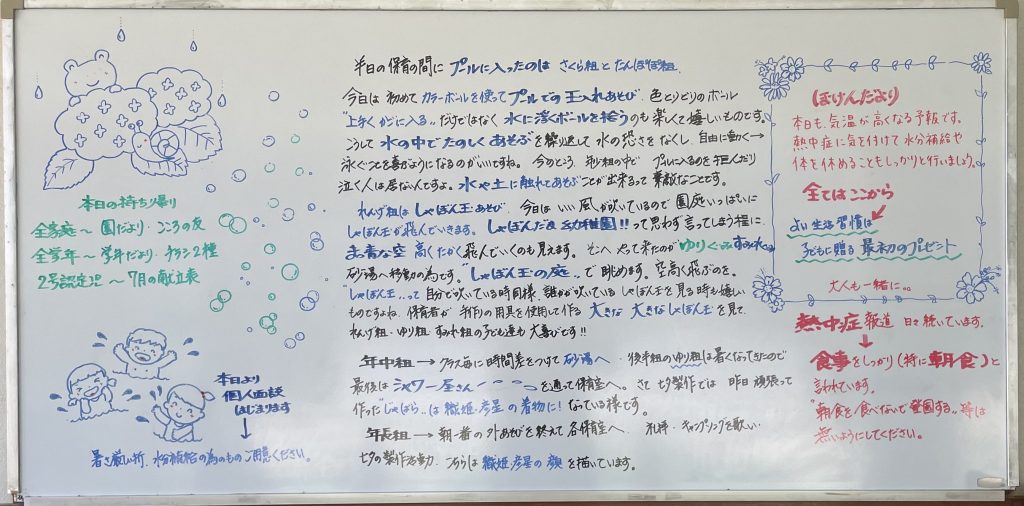 本日の持ち帰り
全家庭〜園だより・こころの友
全学年〜学年だより・チラシ2種
2号認定児〜7月の献立表
本日より
個人面談
はじまります
暑さ厳しい折、水分補給の為のものご用意ください。
半日の保育の間にプールに入ったのは さくら組とたんぽぽ組。
今日は 初めて カラーボールを使ってプールでの玉入れあそび、色とりどりのボール
"上手くかごに入る"だけではなく 水に浮くボールを拾うのも楽しくて嬉しいものです。
こうして 水の中でたのしくあそぶを繰り返して 水の恐さをなくし、自由に動く→
泳ぐことを喜ぶようになるのがいいですね。今のところ、年少組の中で プールに入るのを拒んだり
泣く人は居ないんですよ。水や土に触れてあそぶことが出来るって 素敵なことです。
れんげ組は しゃぼん玉・あそび、今日は いい風が吹いているので 園庭いっぱいに
しゃぼん玉が飛んでいきます。しゃぼんだま幼稚園!!って思わず言ってしまう程に、
まっ青な空 高くたかく飛んでいくのも見えます。そこへやって来たのが ゆりぐみ すみれぐみ
砂場へ移動の為です。"しゃぼん玉の庭"で眺めます。空高く飛ぶのを。
"しゃぼん玉"って 自分で吹いている時同様、誰かが吹いている しゃぼん玉を見る時も嬉しい
ものですよね、保育者が 手作りの用具を使用して作る 大きな 大きなしゃぼん玉を見て、
れんげ組・ゆり組・すみれ組の子ども達も 大喜びです!!
年中組→クラス毎に時間差をつけて 砂場へ・後半組のゆり組は暑くなってきたので
最後は シャワー屋さんーーーっを通って保育室へ。さて 七夕製作では 昨日 頑張って
作った"じゃばら"は 織姫・彦星の着物に!なっている様です。
年長組→朝一番の外あそびを終えて 各保育室へ。礼拝・キャンプソングを歌い
七夕の製作活動、こちらは 織姫・彦星の 顔 を描いています。
ほけんだより
本日も、気温が高くなる予報です。
熱中症に気を付けて 水分補給や
体を休めることもしっかりと行いましょう。
全てはここから
よい生活習慣は
子どもに贈る 最初のプレゼント
大人も一緒に。。
熱中症 報道 日々続いています。
食事をしっかり(特に朝食)と
言われています。
"朝食を食べないで登園する"等は
無いようにしてください。